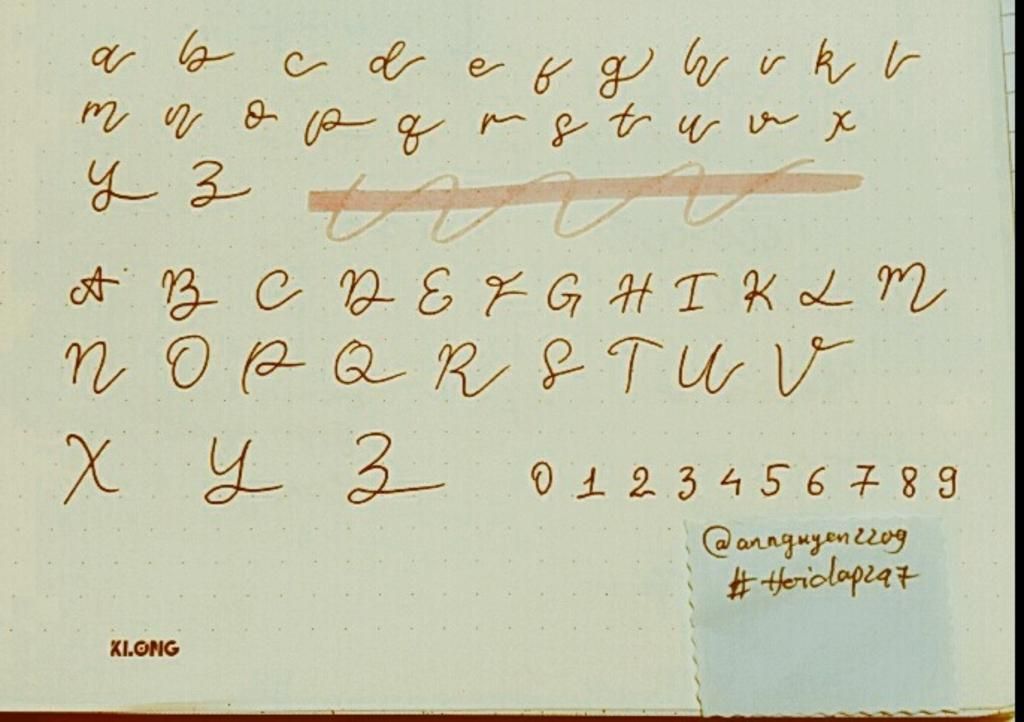 a b c d e f g h i k l
m n o p q r s t u v x
y z
A B C D E F G H I K L M
N O P Q R S T U V
X Y Z
0 1 2 3 4 5 6 7 8 9
@annguyen2209
KLONG